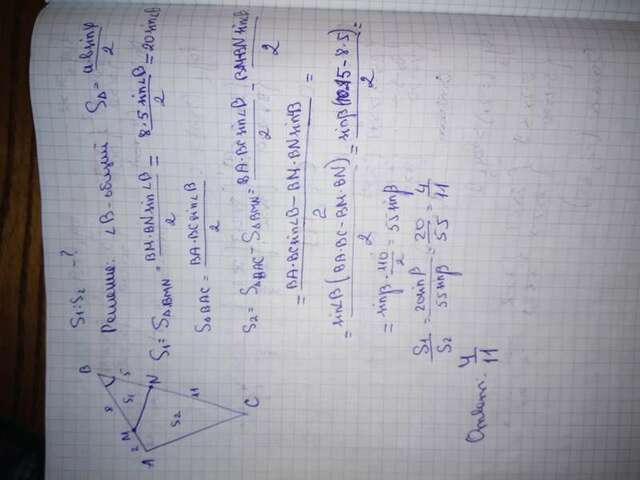 S₁:S₂ -?
Решение: ∠B-общий S△ = a·b sinφ / 2
B
8
S₁
5
2 M
A
N
S₂
11
C
S₁ = S△BMN = BM·BN sin∠B / 2 = 8·5 sin∠B / 2 = 20 sin∠B
S△BAC = BA·BC sin∠B / 2
S₂ = S△BAC - S△BMN = BA·BC sin∠B / 2 - BM·BN sin∠B / 2
= BA·BC sin∠B - BM·BN sin∠B / 2 =
= sin∠B (BA·BC - BM·BN) / 2 = sinβ (10·15 - 8·5) / 2 =
= sinβ · 110 / 2 = 55 sinβ
S₁ / S₂ = 20 sinβ / 55 sinβ = 20 / 55 = 4 / 11
Ответ: 4 / 11